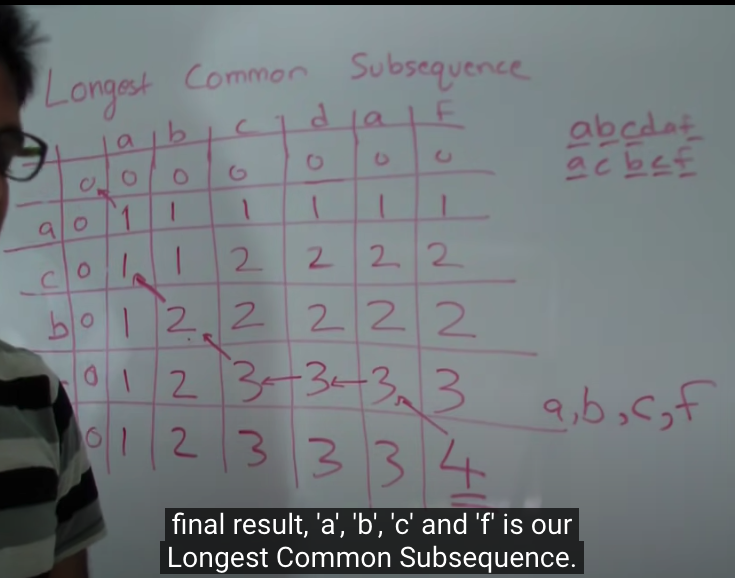 Longest Common Subsequence
a b c d a F
0 0 0 0 0 0 0
a 0 1 1 1 1 1 1
c 0 1 1 2 2 2 2
b 0 1 2 2 2 2 2
0 1 2 3 3 3 3
0 1 2 3 3 3 4
abcdaf
acbcf
a,b,c,f
final result, 'a', 'b', 'c' and 'f' is our
Longest Common Subsequence.